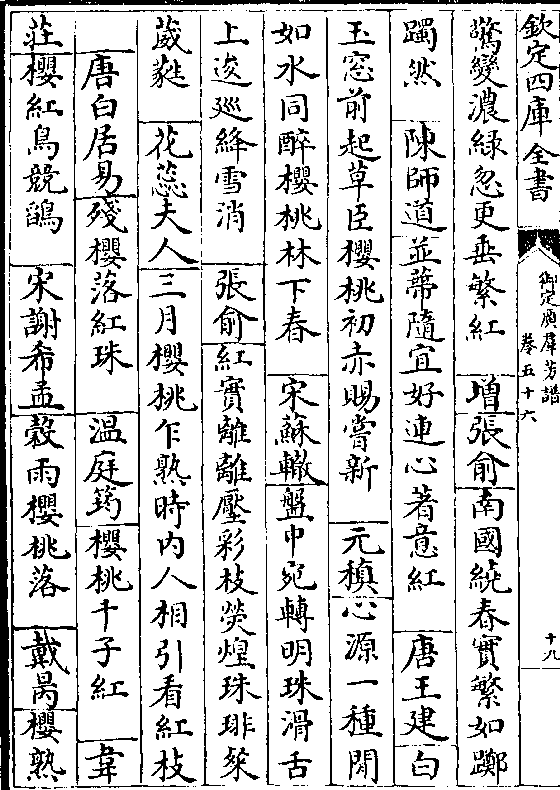 欽定四庫全書
御定廣羣芳譜
卷五十六
十九
驚變濃緑忽更垂繁紅　增張俞南國繞春實繁如躑
躅然　陳師道並蔕隨宜好連心著意紅　唐王建白
玉窓前起草臣櫻桃初赤賜嘗新　元稹心源一種閒
如水同醉櫻桃林下春　宋蘇轍盤中宛轉明珠滑舌
上逡廵絳雪消　張俞紅實離離壓彩枝熒煌珠琲粲
葳蕤　花蕊夫人三月櫻桃乍熟時内人相引看紅枝
唐白居易殘櫻落紅珠　温庭筠櫻桃千子紅　韋
莊櫻紅鳥競鵮　宋謝希孟榖雨櫻桃落　戴昺櫻熟